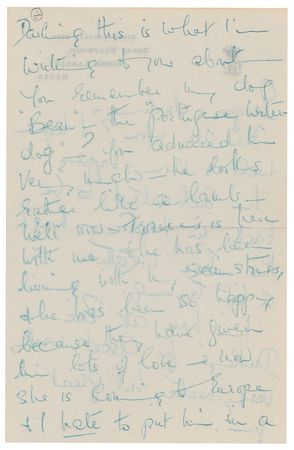 ②
Darling this is what I'm
writing to you about —
You remember my dog
"Beau" — the "Portugese water
dog" — ? You admired him
very much — he looks
rather like a lamb —
Well now Frances is here
with me — She has been
living with my seamstress,
& he has been so happy
because they have given
him lots of love — now
she is coming to Europe
& I hate to put him in a